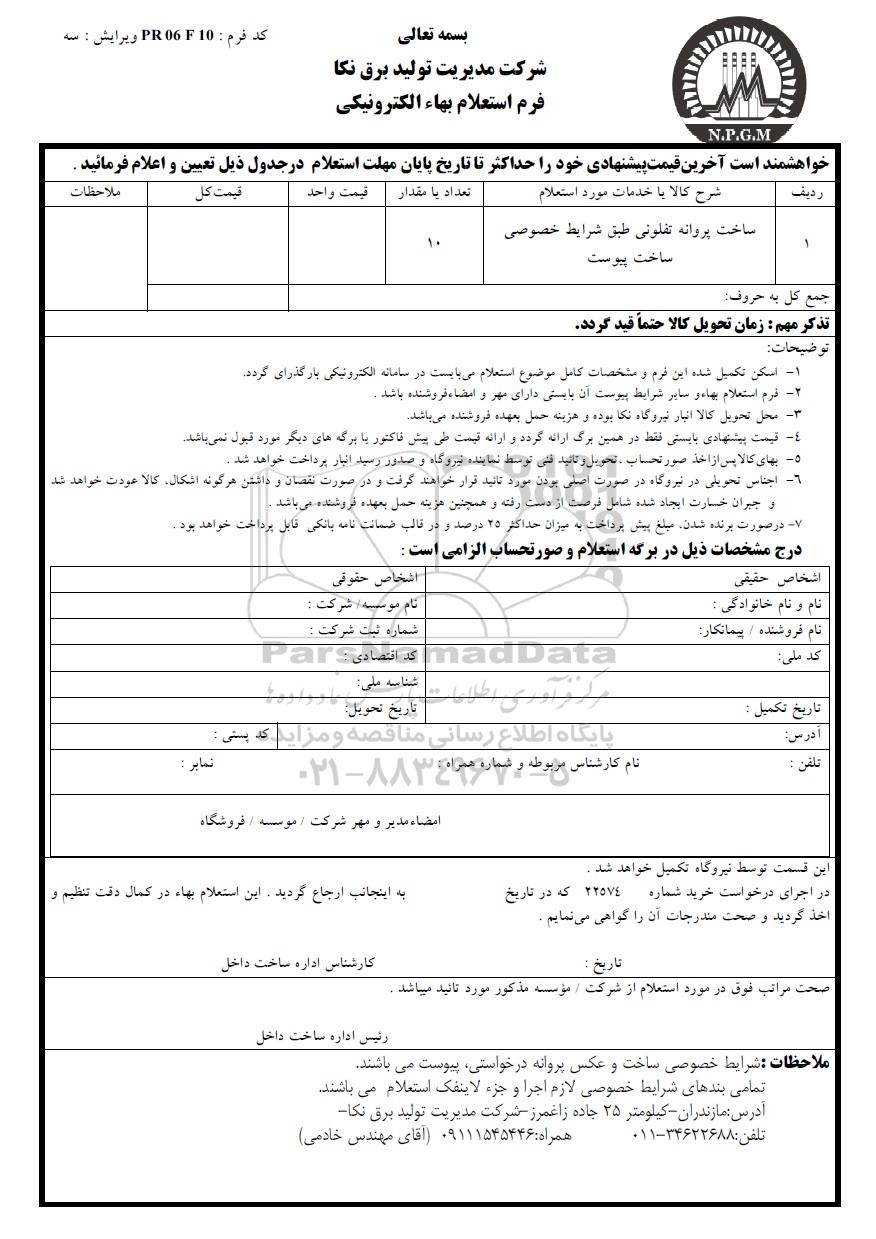 بسمه تعالی
کد فرم : PR 06 F 10 ویرایش : سه
شرکت مدیریت تولید برق نکا
فرم استعلام بهاء الکترونیکی
N.P.G.M
خواهشمند است آخرین‌قیمت‌پیشنهادی خود را حداکثر تا تاریخ پایان مهلت استعلام درجدول ذیل تعیین و اعلام فرمائید .
ردیف شرح کالا یا خدمات مورد استعلام تعداد یا مقدار قیمت واحد قیمت‌کل ملاحظات
۱ ساخت پروانه تفلونی طبق شرایط خصوصی ۱۰
ساخت پیوست
جمع کل به حروف:
تذکر مهم : زمان تحویل کالا حتماً قید گردد.
توضیحات:
۱- اسکن تکمیل شده این فرم و مشخصات کامل موضوع استعلام می‌بایست در سامانه الکترونیکی بارگذرای گردد.
۲- فرم استعلام بهاءو سایر شرایط پیوست آن بایستی دارای مهر و امضاءفروشنده باشد .
۳- محل تحویل کالا انبار نیروگاه نکا بوده و هزینه حمل بعهده فروشنده می‌باشد.
٤- قیمت پیشنهادی بایستی فقط در همین برگ ارائه گردد و ارائه قیمت طی پیش فاکتور یا برگه های دیگر مورد قبول نمی‌باشد.
٥- بهای‌کالاپس‌ازاخذ صورتحساب ،تحویل‌وتائید فنی توسط نماینده نیروگاه و صدور رسید انبار پرداخت خواهد شد .
٦- اجناس تحویلی در نیروگاه در صورت اصلی بودن مورد تائید قرار خواهند گرفت و در صورت نقصان و داشتن هرگونه اشکال، کالا عودت خواهد شد
و جبران خسارت ایجاد شده شامل فرصت از دست رفته و همچنین هزینه حمل بعهده فروشنده می‌باشد .
۷- درصورت برنده شدن، مبلغ پیش پرداخت به میزان حداکثر ۲۵ درصد و در قالب ضمانت نامه بانکی قابل پرداخت خواهد بود .
درج مشخصات ذیل در برگه استعلام و صورتحساب الزامی است :
اشخاص حقیقی اشخاص حقوقی
نام و نام خانوادگی : نام موسسه/ شرکت :
نام فروشنده / پیمانکار: شماره ثبت شرکت :
کد ملی: کد اقتصادی :
شناسه ملی:
تاریخ تکمیل : تاریخ تحویل:
آدرس: کد پستی :
تلفن : نام کارشناس مربوطه و شماره همراه : نمابر :
امضاءمدیر و مهر شرکت / موسسه / فروشگاه
ParsNamadData
مرکز فرآوری اطلاعات پارس نماد داده‌ها
پایگاه اطلاع رسانی مناقصه و مزایده
۰۲۱-۸۸۳۴۹۶۷۰-۵
این قسمت توسط نیروگاه تکمیل خواهد شد .
در اجرای درخواست خرید شماره ۲۲۵۷٤ که در تاریخ به اینجانب ارجاع گردید . این استعلام بهاء در کمال دقت تنظیم و
اخذ گردید و صحت مندرجات آن را گواهی می‌نمایم .
تاریخ : کارشناس اداره ساخت داخل
صحت مراتب فوق در مورد استعلام از شرکت / مؤسسه مذکور مورد تائید میباشد .
رئیس اداره ساخت داخل
ملاحظات :شرایط خصوصی ساخت و عکس پروانه درخواستی، پیوست می باشند.
تمامی بندهای شرایط خصوصی لازم اجرا و جزء لاینفک استعلام می باشند.
آدرس:مازندران-کیلومتر ۲۵ جاده زاغمرز-شرکت مدیریت تولید برق نکا-
تلفن:۳۴۶۲۲۶۸۸-۰۱۱ همراه:۰۹۱۱۱۵۴۵۴۴۶ (آقای مهندس خادمی)